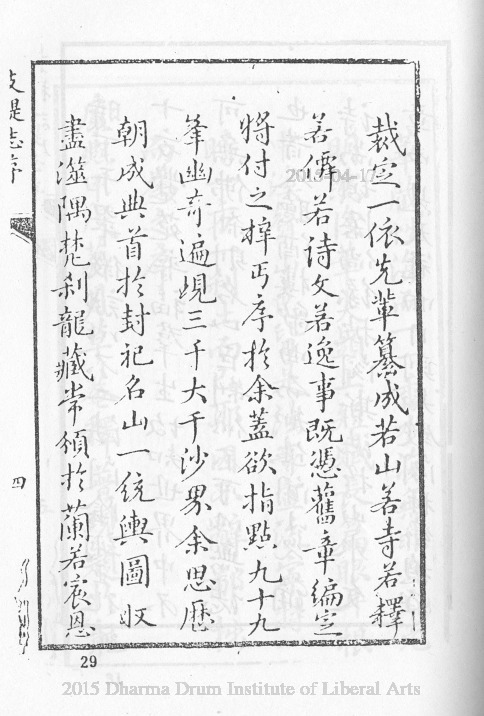 裁定一依先輩纂成若山若寺若釋
若儒若詩文若逸事既憑舊章編定
將付之梓丐序於余蓋欲指點九十九
峯幽奇遍現三千大千沙界余思歷
朝成典首於封祀名山一統輿圖收
盡遐隅梵刹龍藏常頒於蘭若宸恩
支提志序
四
29
2015-04-17
2015 Dharma Drum Institute of Liberal Arts